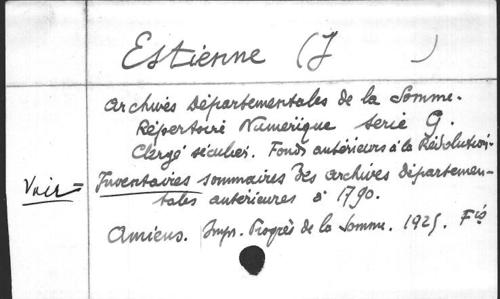 Estienne (J )
Archives Départementales de la Somme.
Répertoire Numérique serie G.
Clergé séculier. Fonds antérieurs à la Révolution.
Voir = Inventaires sommaires des archives départemen-
tales antérieures à 1790.
Amiens. Imp. Progrès de la Somme. 1925. Fis